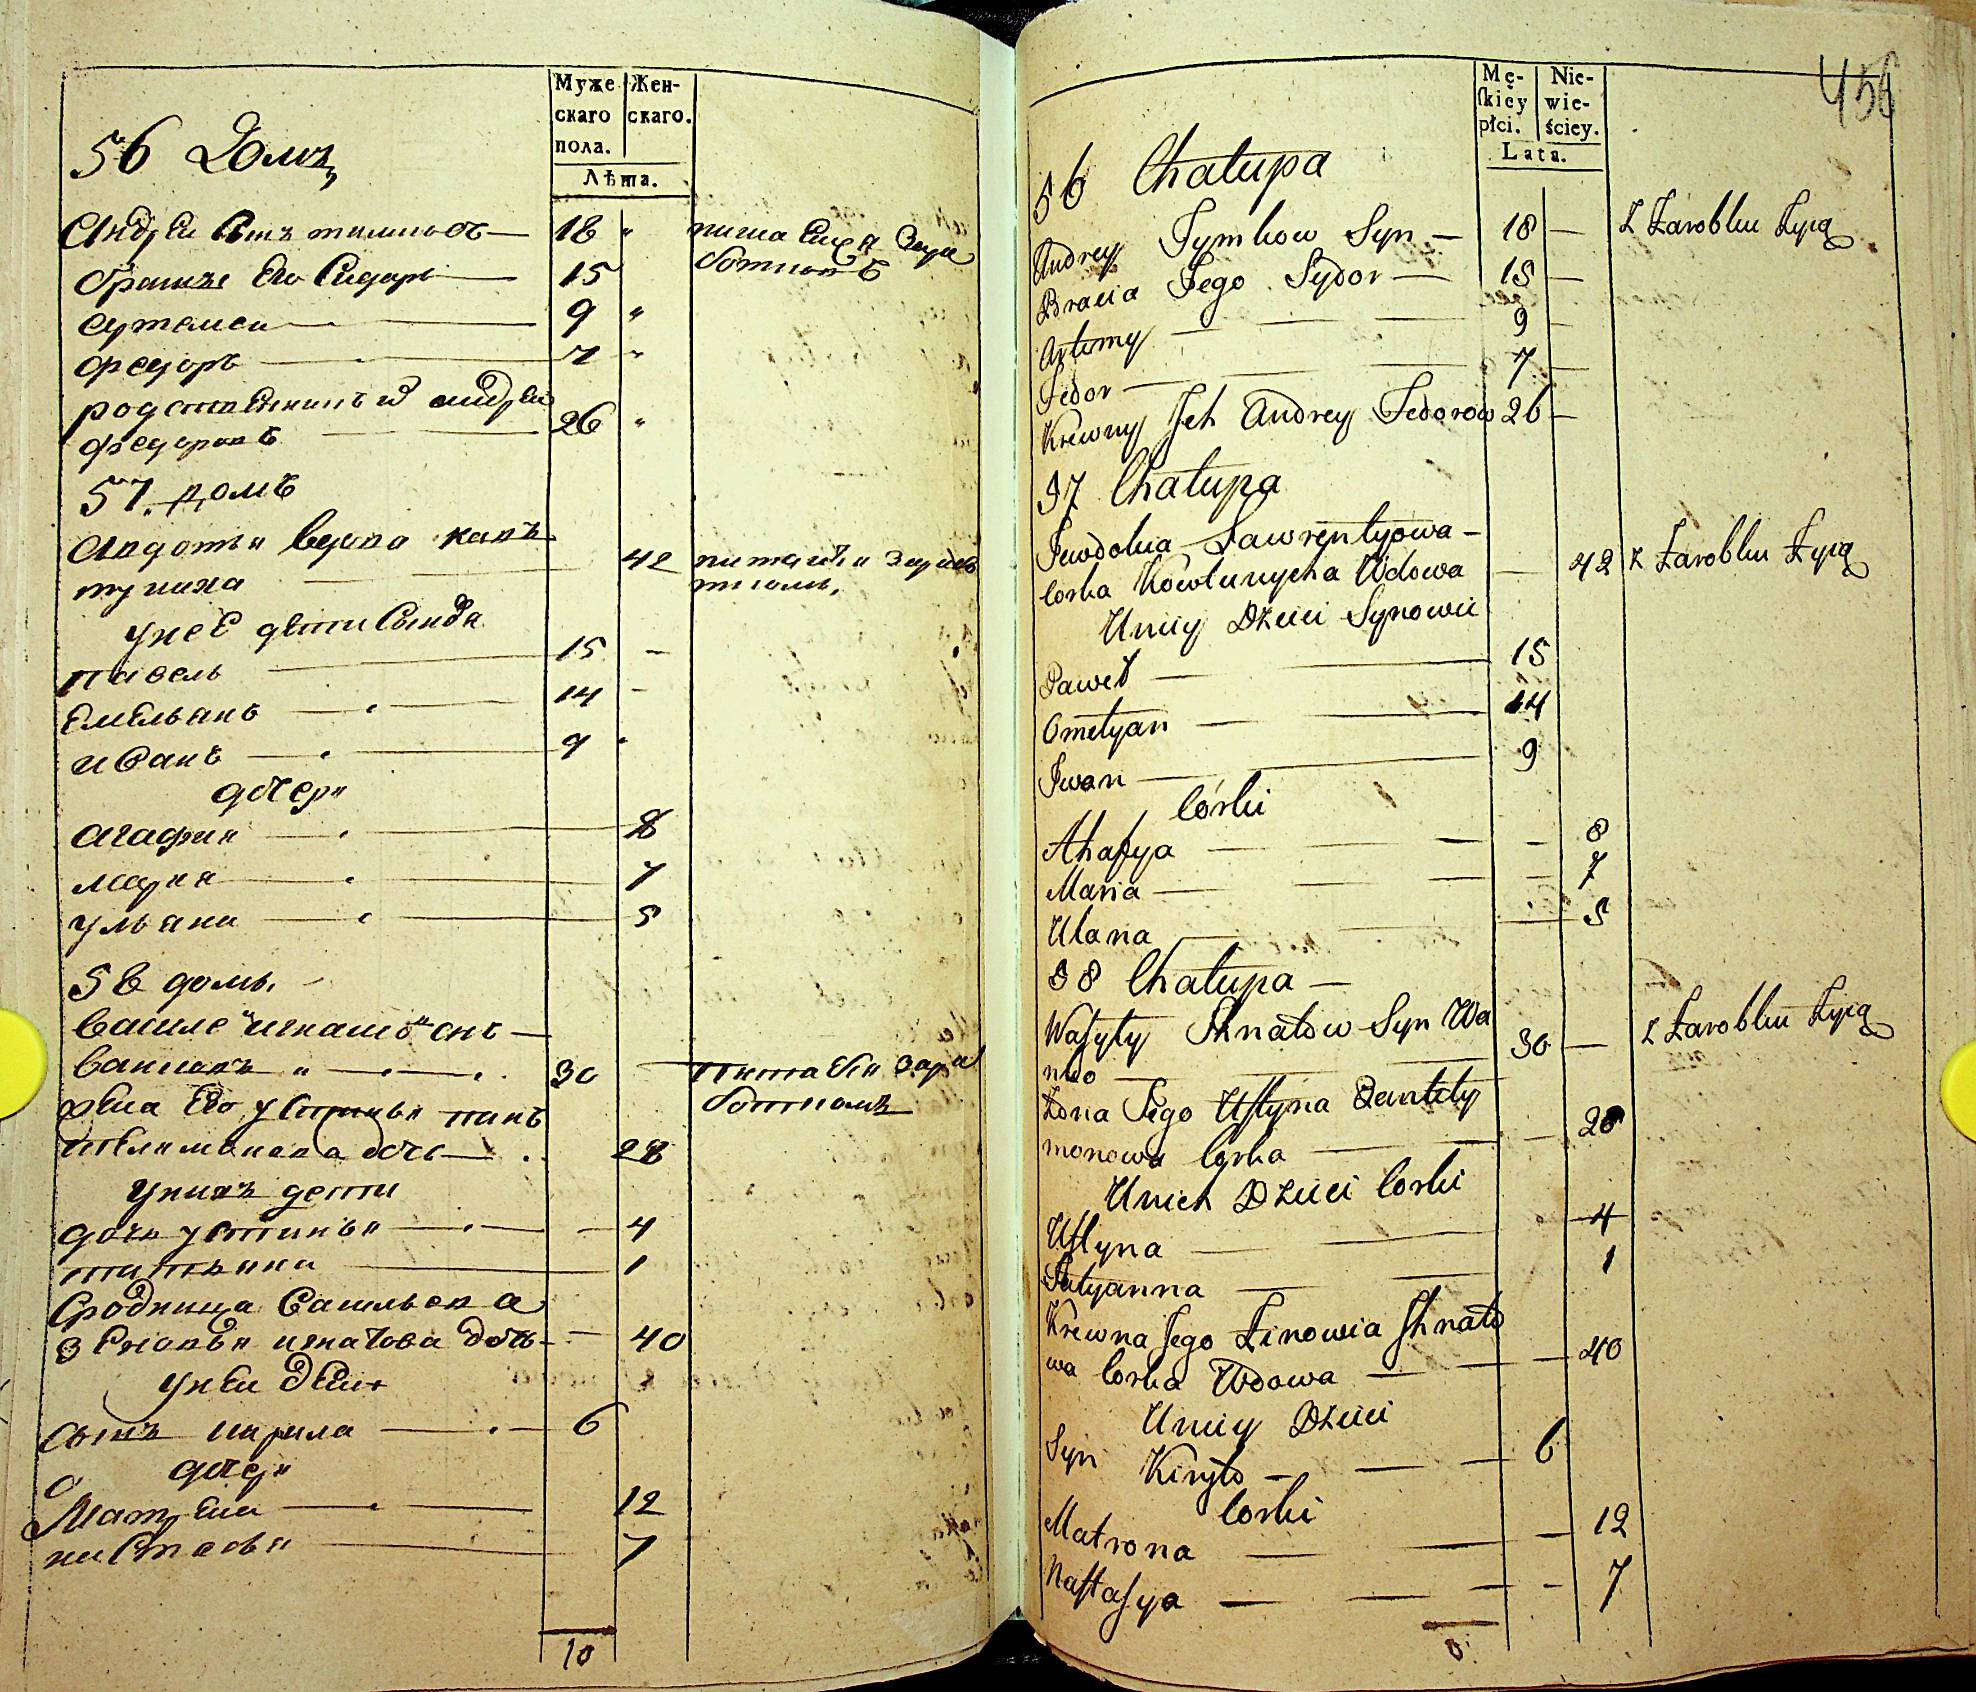 Муже
скаго
пола.
Жен-
скаго.
Лѣта.
56 Домъ
Андрей Сынъ тимковъ 18 "
братье Его Сидоръ 15
9 "
федоръ 7 "
родственникъ андрей
федоровъ 26 "
57. домъ
42
туниха
унеё дети Сынов
павелъ 15 –
Емельянъ 14 –
иванъ 9
дочери
агафия 8
мария 7
ульяна 5
58 домъ.
василе игнатовъ снъ
ванковъ " 30 питается зара
боткомъ
жена Его устинья панъ
телимонова дочь 28
унихъ дети
дочь устинья 4
татьяна 1
Сродница Васильева
зеновья игнатова дочь 40
уней дети
Сынъ кирила 6
дочери
Матрена 12
настасья 7
10
456
Mę-
ſkiéy
płci.
Nie-
wie-
ściey.
Lata.
56 Chałupa
Andrey Tymkow Syn 18 — Z Zarobku Żyią
Bracia Jego Sydor 15 —
Artemy 9 —
Fedor 7 —
Krewny Jch Andrey Fedorow 26 —
57 Chałupa
Jewdokia Ławrentyowa
Corka Kowtunycha Wdowa — 42 z Zarobku Żyią
Uniey Dzieci Synowie
Paweł 15
Omelyan 14
Jwan 9
Córki
Ahafya 8
Maria 7
Ulana 5
58 Chałupa
Waſyly Jhnatow Syn Wa
nko 30 — z Zarobku Żyią
Żona Jego Uſtyna Pantely
monowa Corka 28
Unich Dzieci Corki
Uſtyna 4
Tatyanna 1
Krewna Jego Zinowia Jhnato
wa Corka Wdowa 40
Uniey Dzieci
Syn Kiryło 6
Corki
Matrona 12
Naſtaſya 7